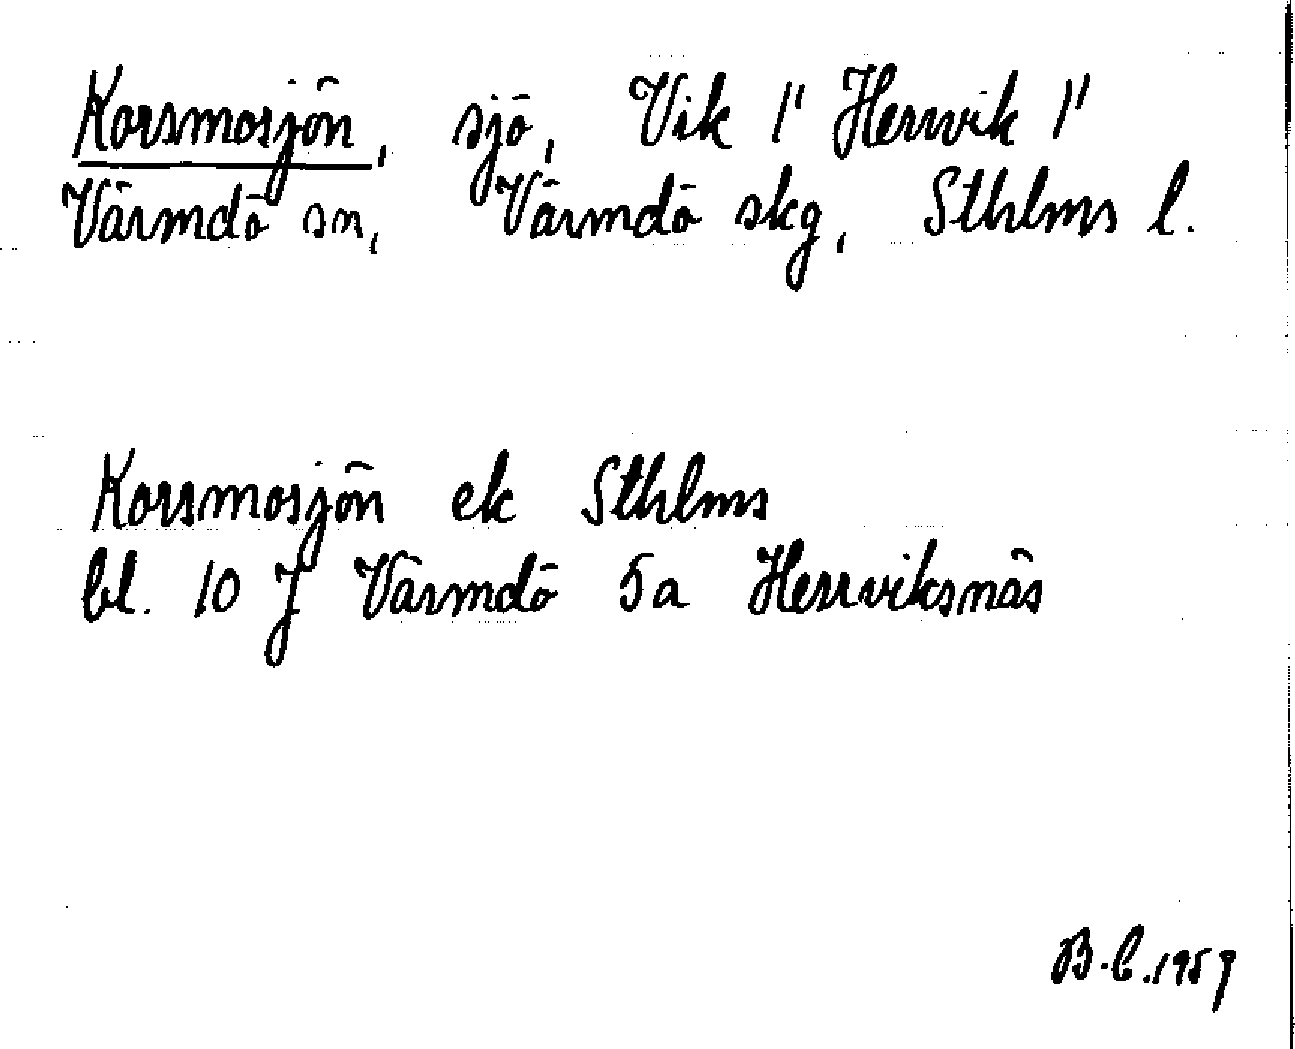 Korsmosjön, sjö, Vik 1' Herrvik 1'
Värmdö sn, Värmdö skg, Sthlms l.
Korsmosjön ek Sthlms
bl. 10 J Värmdö 5a Herrviksnäs
B.C. 1959